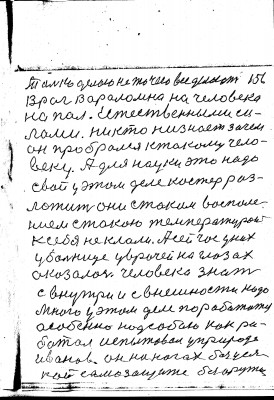 Только делаю не то чего все делают 156
Враг Вараломна на человека
напал. Естественными си-
лами. никто ни знает зачем
он пробрался к такому чело-
веку. А для науки это надо
свой у этом деле костер раз-
ложить они с таком воспале-
нием с такою температурой
к себя не клали. А сейчас у них
у больнице у врачей на глазах
оказалось человека знать
с внутри и с внешности надо
много у этом деле поработать
особенно над собою как ра-
ботал испытовал у природе
Иванов. он на ногах босуем
кой самозащите без